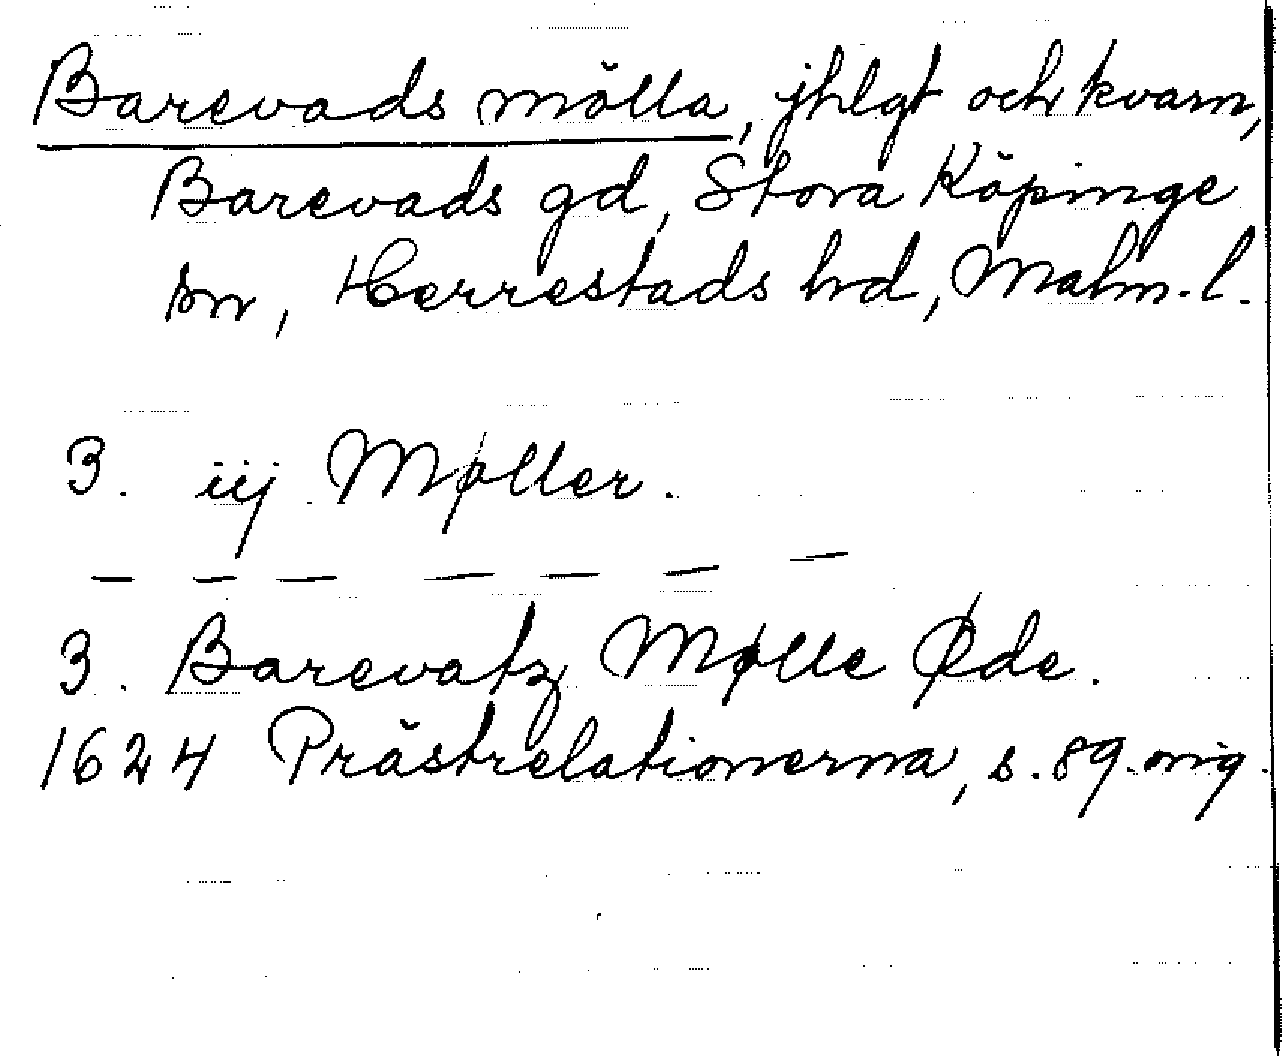 Barevads mölla, jhlgt och kvarn,
Barevads gd, Stora Köpinge
sn, Herrestads hd, Malm. l.
3. iij Møller.
— — — — — — —
3. Barevatz Mølle Øde.
1624 Prästrelationerna, s. 89. orig.